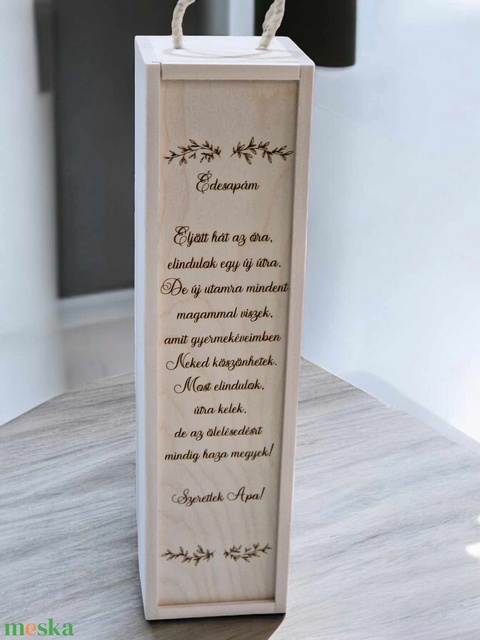 Édesapám
Eljött hát az óra,
elindulok egy új útra.
De új utamra mindent
magammal viszek,
amit gyermekéveimben
Neked köszönhetek.
Most elindulok,
útra kelek,
de az ölelésedért
mindig haza megyek!
Szeretlek Apa!
meska